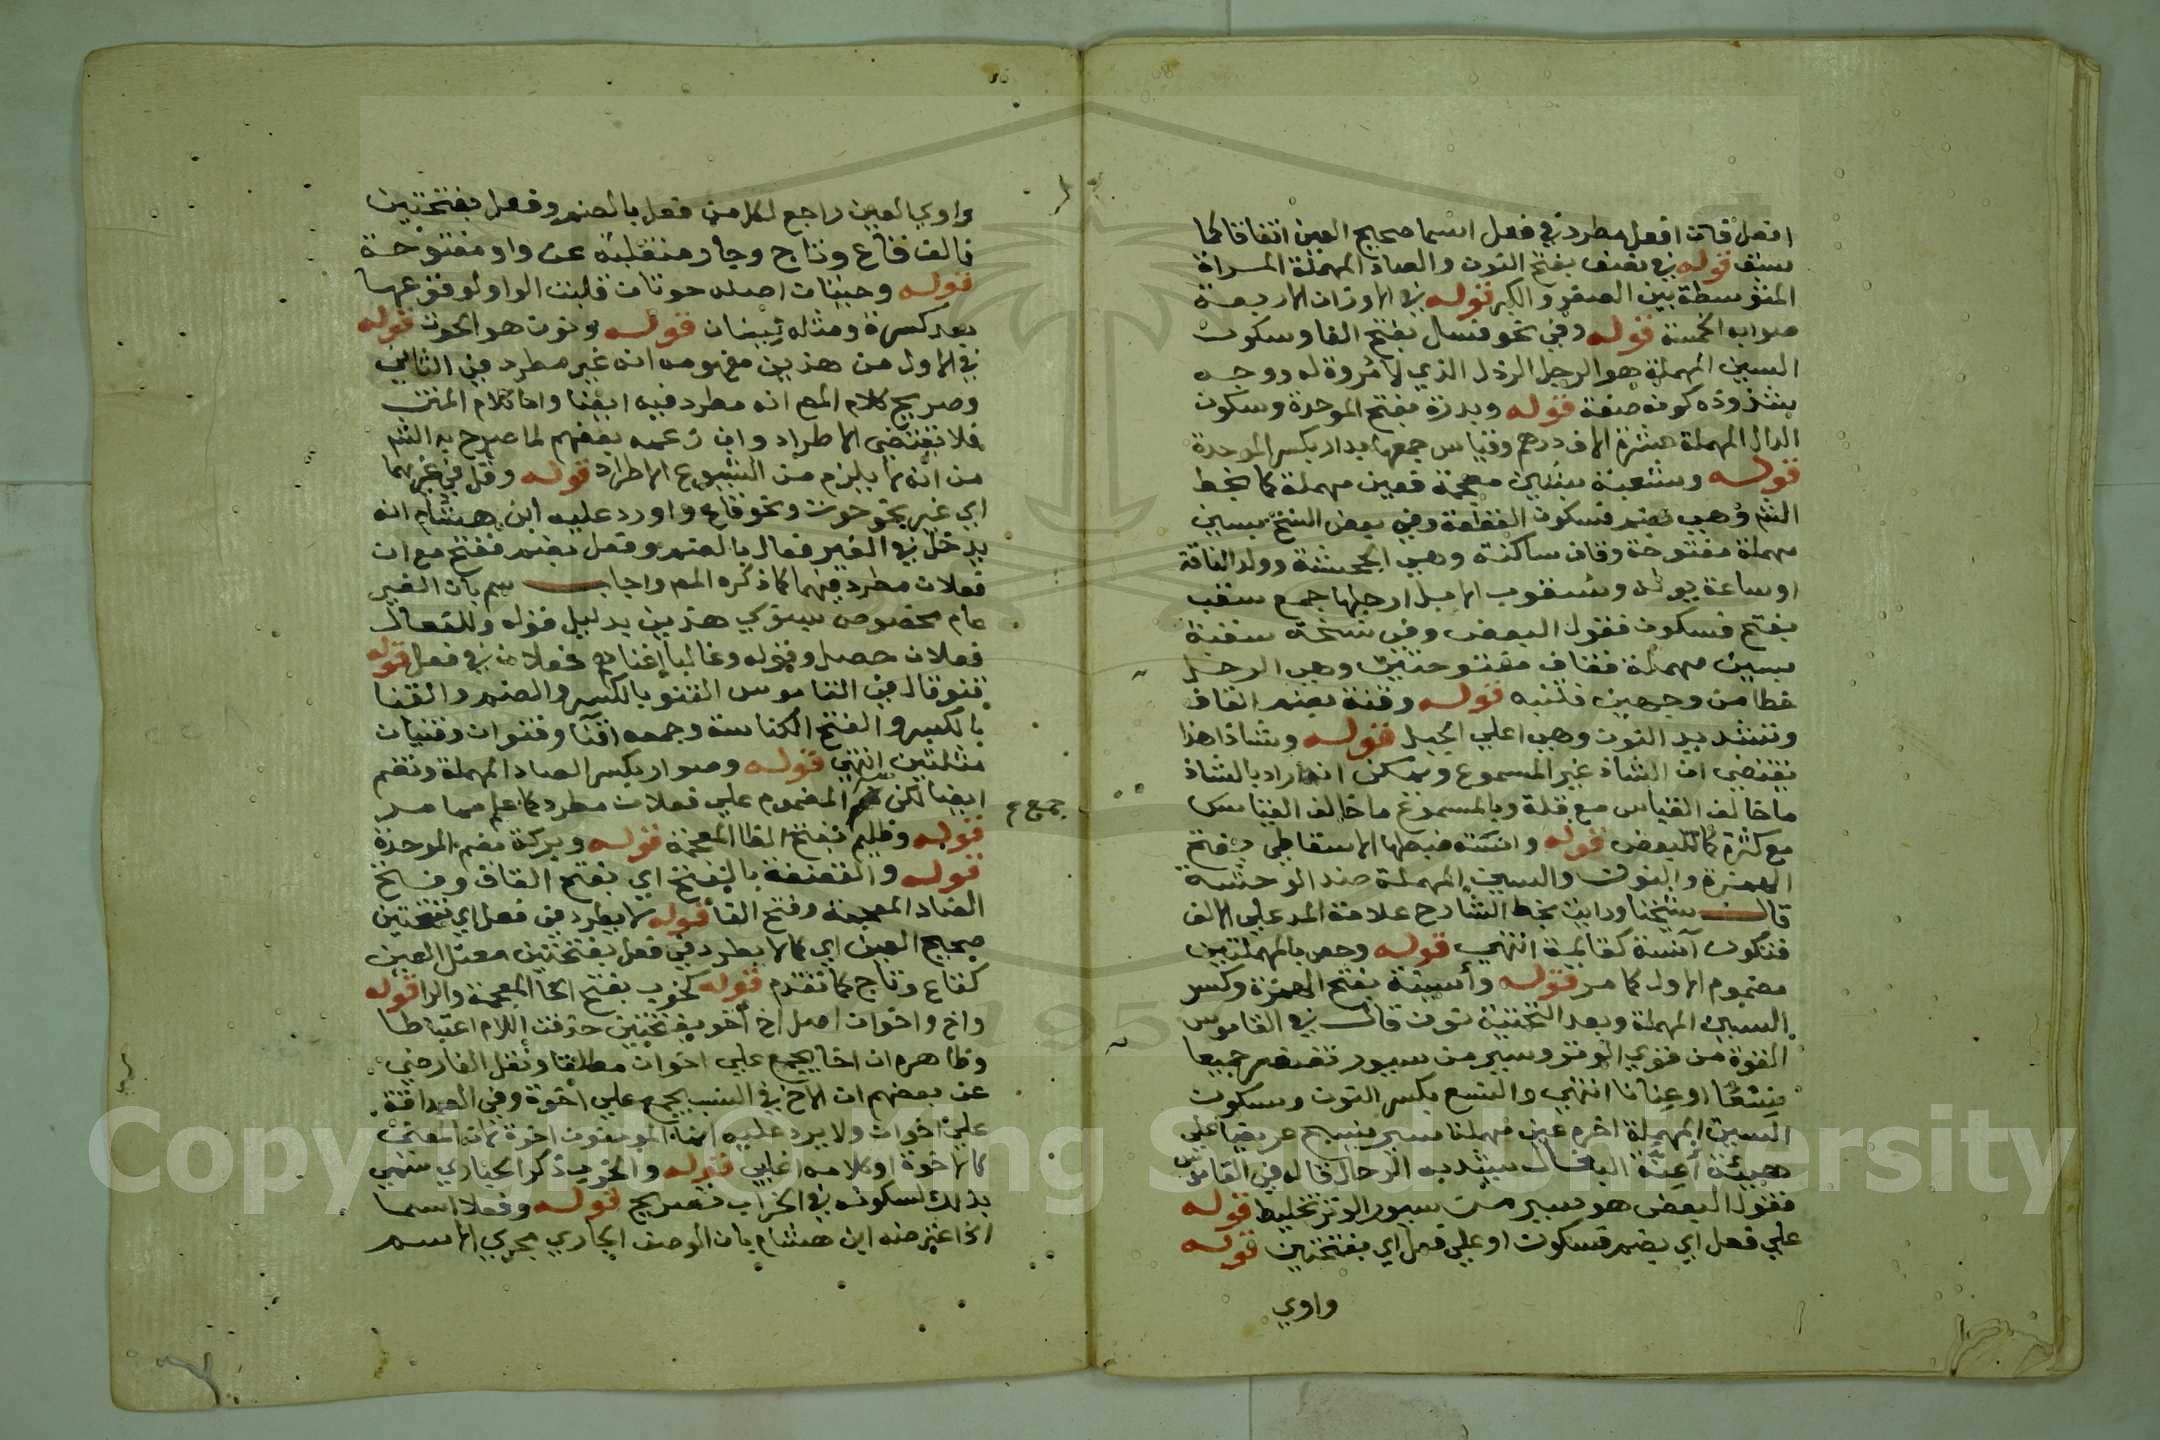 افعل فان افعل مطرد في فعل اسما صحيح العين اتفاقا كما
سبق قوله في نصف بفتح النون والصاد المهملة المراة
المتوسطة بين الصغر والكبر قوله في الاوزان الاربعة
صوابه الخمسة قوله وفي نحو فسل بفتح الفا وسكون
السين المهملة هو الرجل الرذل الذي لا مروة له ووجه
شذوذه كونه صفة قوله وبدرة بفتح الموحدة وسكون
الدال المهملة عشرة الاف درهم وقياس جمعها بدار بكسر الموحدة
قوله وشعبة بشين معجمة فعين مهملة كما بخط
الشم وهي بضم فسكون القطعة وفي بعض النسخ بسين
مهملة مفتوحة وقاف ساكنة وهي الجحشة وولد الناقة
او ساعة يولد وسقوب الابل ارجلها جمع سقب
بفتح فسكون فقول البعض وفي نسخة سقبة
بسين مهملة فقاف مفتوحتين وهي الرحل
خطا من وجهين فتنبه قوله وقنة بضم القاف
وتشديد النون وهي اعلي الجبل قوله وشذ هذا
يقتضي ان الشاذ غير المسموع ويمكن انه اراد بالشاذ
ما خالف القياس مع قلة وبالمسموع ما خالف القياس
مع كثرة كما للبعض قوله وانسة ضبطها الاسقاطي بفتح
الهمزة والنون والسين المهملة ضد الوحشة
قال شيخنا ورايت بخط الشارح علامة المد علي الالف
فتكون آنسة كقائمة انتهي قوله وحص بالمهملتين
مضموم الاول كما مر قوله وأسينة بفتح الهمزة وكسر
السين المهملة وبعد التحتية نون قال في القاموس
القوة من قوي الوتر وسير من سيور تضفر جميعا
نسعا او عنانا انتهي والنسع بكسر النون وسكون
السين المهملة اخره عين مهملة سير ينسج عريضا علي
هيئة أعنة البغال يشد به الرحال قاله في القاموس
فقول البعض هو سير من سيور الوتر تخليط قوله
علي فعل اي بضم فسكون او علي فعل اي بفتحتين قوله
واوي
واوي العين راجع لكل من فعل بالضم وفعل بفتحتين
فالف قاع وتاج وجار منقلبة عن واو مفتوحة
قوله وحيتان اصله حوتان قلبت الواو لوقوعها
بعد كسرة ومثله نينان قوله ونون هو الحوت قوله
في الاول من هذين مفهومه انه غير مطرد في الثاني
وصريح كلام المص انه مطرد فيه ايضا واما كلام المتن
فلا يقتضي الاطراد وان زعمه بعضهم لما صرح به الشم
من انه لا يلزم من الشيوع الاطراد قوله وقل في غيرهما
اي غير نحو حوت ونحو قاع واورد عليه ابن هشام انه
يدخل في الغير فعال بالضم وفعل بضم ففتح مع ان
فعلان مطرد فيهما كما ذكره المص واجاب سم بان الغير
عام مخصوص بسوي هذين بدليل قوله وللفعال
فعلان حصل وقوله وغالبا اغناهم فعلان في فعل قوله
قنو قال في القاموس القنو بالكسر والضم والقنا
بالكسر والفتح الكباسة وجمعه اقنآ وقنوان وقنيان
مثلثتين انتهي قوله وصوار بكسر الصاد المهملة وتضم
ايضا لكن جمع المضموم علي فعلان مطرد كما علم مما مر
جمع ص
قوله وظليم بفتح الظا المعجمة قوله وبركة بضم الموحدة
قوله والقضفة بالفتح اي بفتح القاف وفتح
الضاد المعجمة وفتح الفا قوله لا يطرد في فعل اي بفتحتين
صحيح العين اي كما لا يطرد في فعل بفتحتين معتل العين
كقاع وتاج كما تقدم قوله كخرب بفتح الخا المعجمة والرا قوله
واخ واخوان اصل اخ أخو بفتحتين حذفت اللام اعتباطا
وظاهره ان اخا يجمع علي اخوان مطلقا ونقل الفارضي
عن بعضهم ان الاخ في النسب يجمع علي اخوة وفي الصداقة
علي اخوان ولا يرد عليه انما المومنون اخوة لان المعني
كالاخوة او كلامه اغلبي قوله والخرب ذكر الحباري سمي
بذلك لسكونه في الخراب تصريح قوله وفعلا اسما
الخ اعترضه ابن هشام بان الوصف الجاري مجري الاسم
Copyright © King Saud University
1957